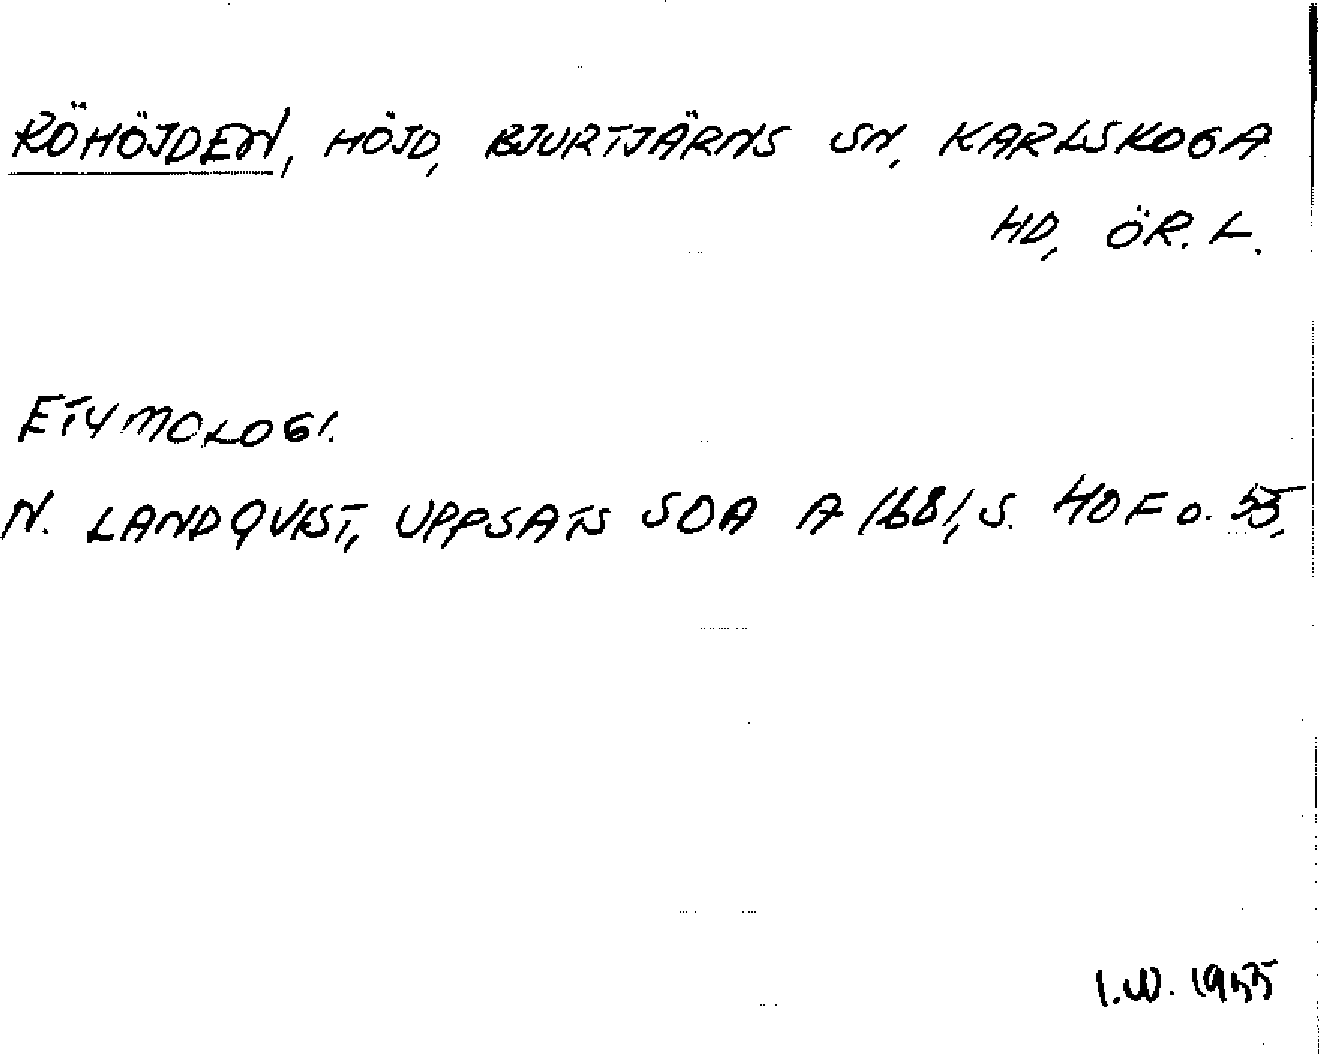 RÖHÖJDEN, HÖJD, BJURTJÄRNS SN, KARLSKOGA
HD, ÖR. L.
ETYMOLOGI.
N. LANDQVIST, UPPSATS SOA A 1681, S. 40 F O. 55.
I.W. 1955